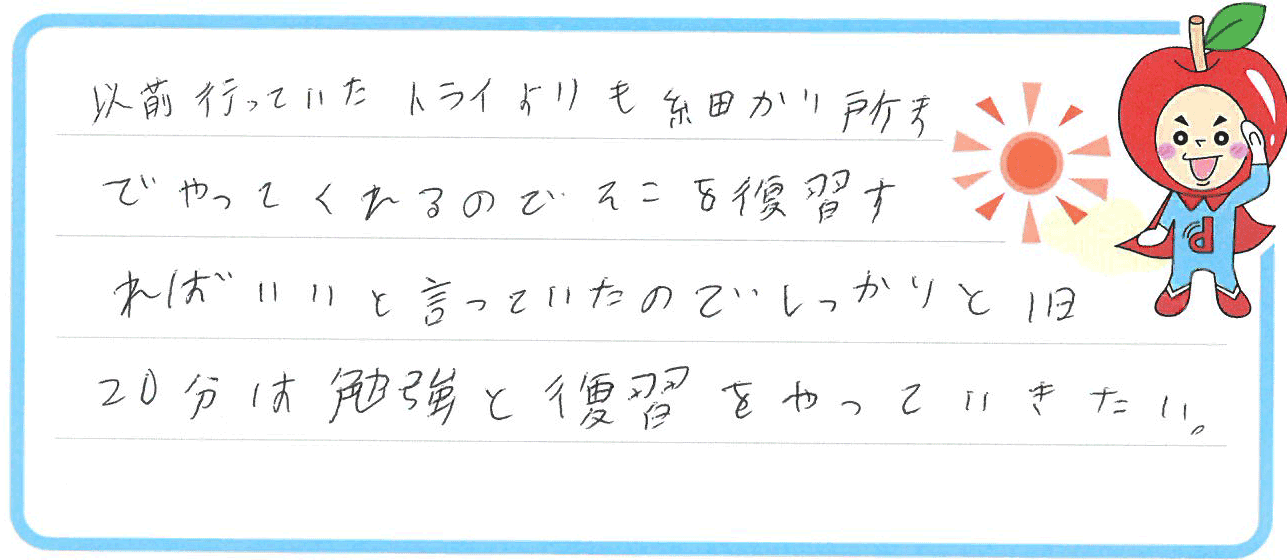 以前行っていたトライよりも細かい所ま
でやってくれるのでそこを復習す
ればいいと言っていたのでしっかりと1日
20分は勉強と復習をやっていきたい。
d